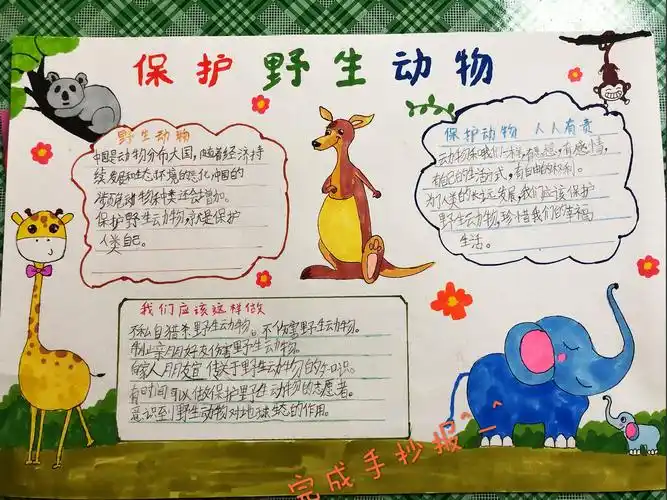 保护野生动物
野生动物
中国是动物分布大国,随着经济持
续发展和生态环境的恶化,中国的
濒危动物种类还会增加。
保护野生动物,就是保护
人类自己。
保护动物 人人有责
动物和我们一样,有思想,有感情,
有自己的生活方式,有自由的权利。
为了人类的长远发展,我们应该保护
野生动物,珍惜我们的幸福
生活。
我们应该这样做
不私自猎杀野生动物。不伤害野生动物。
制止亲朋好友伤害野生动物。
向家人朋友宣传关于野生动物的知识。
有时间可以做保护野生动物的志愿者。
意识到野生动物对地球生态的作用。
完成手抄报^_^